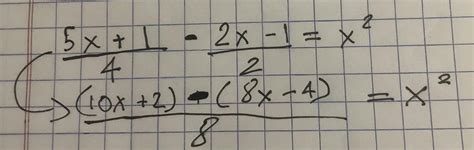 (5x + 1)/4 - (2x - 1)/2 = x²
((10x + 2) - (8x - 4))/8 = x²